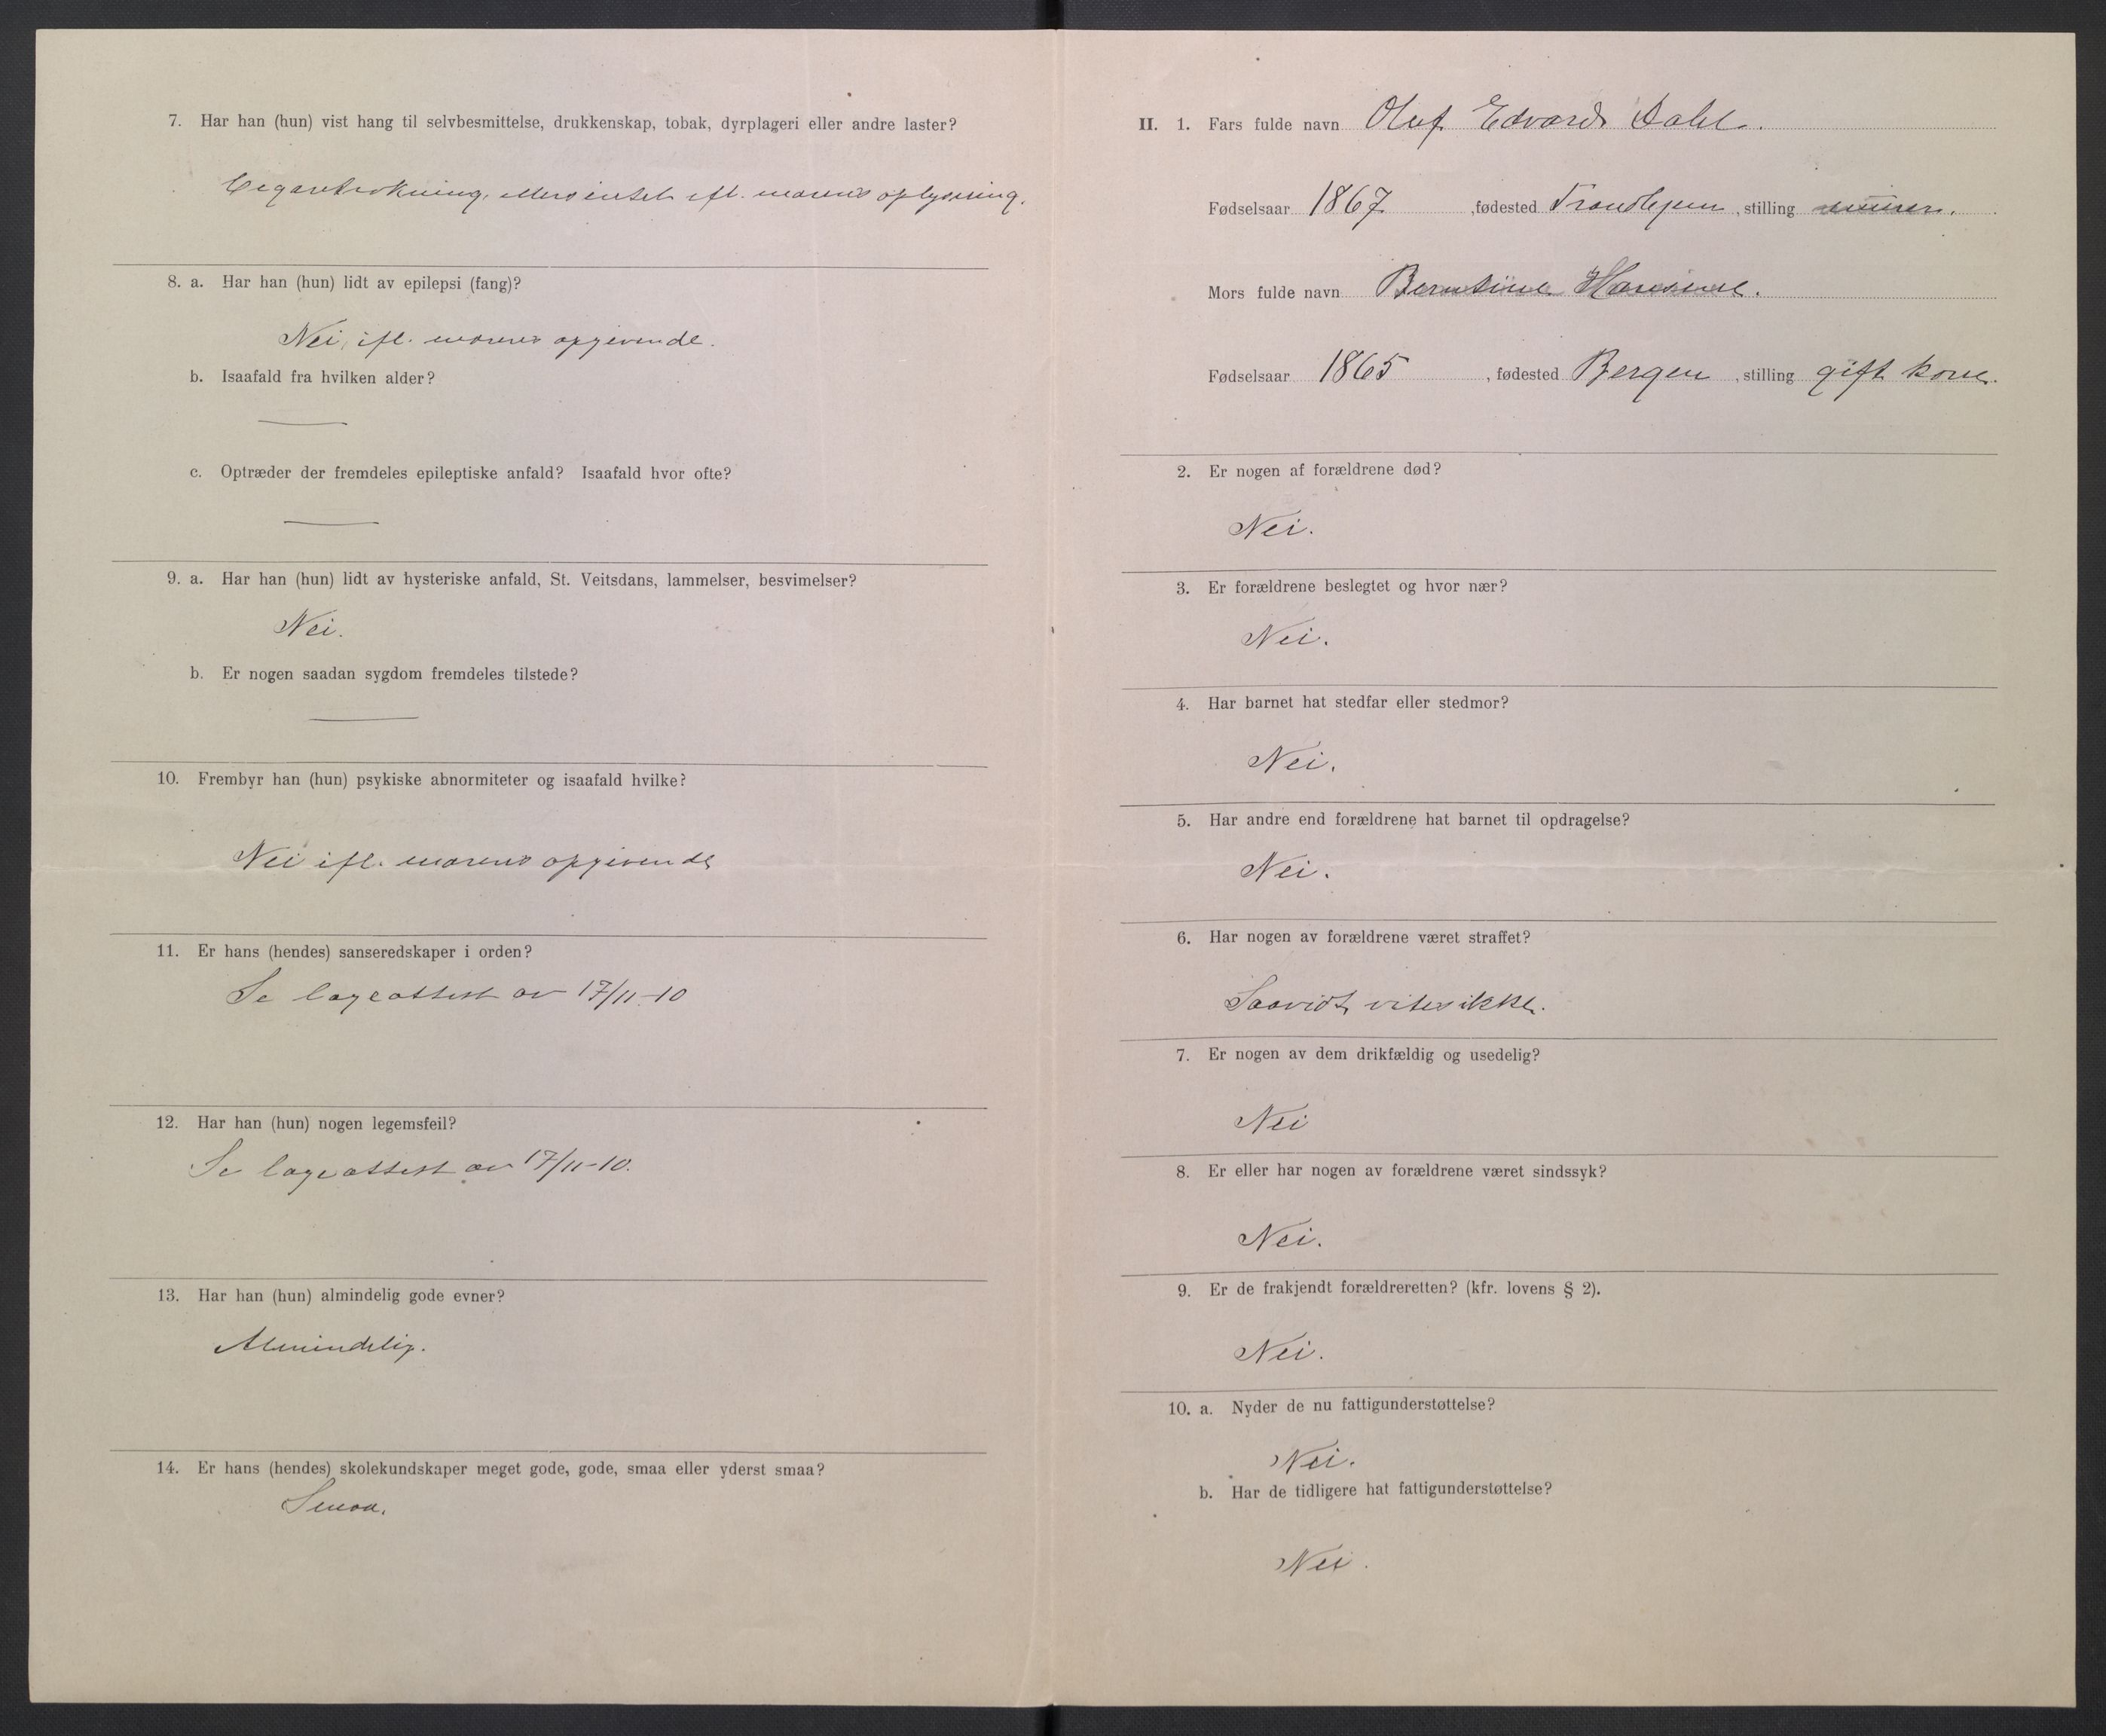 7. Har han (hun) vist hang til selvbesmittelse, drukkenskap, tobak, dyrplageri eller andre laster?
Cigaretrøkning, ellers intet ifl. morens oplysning.
8. a. Har han (hun) lidt av epilepsi (fang)?
Nei, ifl. morens opgivende.
b. Isaafald fra hvilken alder?
c. Optræder der fremdeles epileptiske anfald? Isaafald hvor ofte?
9. a. Har han (hun) lidt av hysteriske anfald, St. Veitsdans, lammelser, besvimelser?
Nei.
b. Er nogen saadan sygdom fremdeles tilstede?
10. Frembyr han (hun) psykiske abnormiteter og isaafald hvilke?
Nei ifl. morens opgivende
11. Er hans (hendes) sanseredskaper i orden?
Se lægeattest av 17/11-10
12. Har han (hun) nogen legemsfeil?
Se lægeattest av 17/11-10.
13. Har han (hun) almindelig gode evner?
Almindelig.
14. Er hans (hendes) skolekundskaper meget gode, gode, smaa eller yderst smaa?
Smaa.
II. 1. Fars fulde navn Oluf Edvard Dahl.
Fødselsaar 1867, fødested Trondhjem, stilling murer.
Mors fulde navn Berntine Hansine.
Fødselsaar 1865, fødested Bergen, stilling gift kone.
2. Er nogen af forældrene død?
Nei.
3. Er forældrene beslegtet og hvor nær?
Nei.
4. Har barnet hat stedfar eller stedmor?
Nei.
5. Har andre end forældrene hat barnet til opdragelse?
Nei.
6. Har nogen av forældrene været straffet?
Saavidt vites ikke.
7. Er nogen av dem drikfældig og usedelig?
Nei
8. Er eller har nogen av forældrene været sindssyk?
Nei.
9. Er de frakjendt forældreretten? (kfr. lovens § 2).
Nei.
10. a. Nyder de nu fattigunderstøttelse?
Nei.
b. Har de tidligere hat fattigunderstøttelse?
Nei.